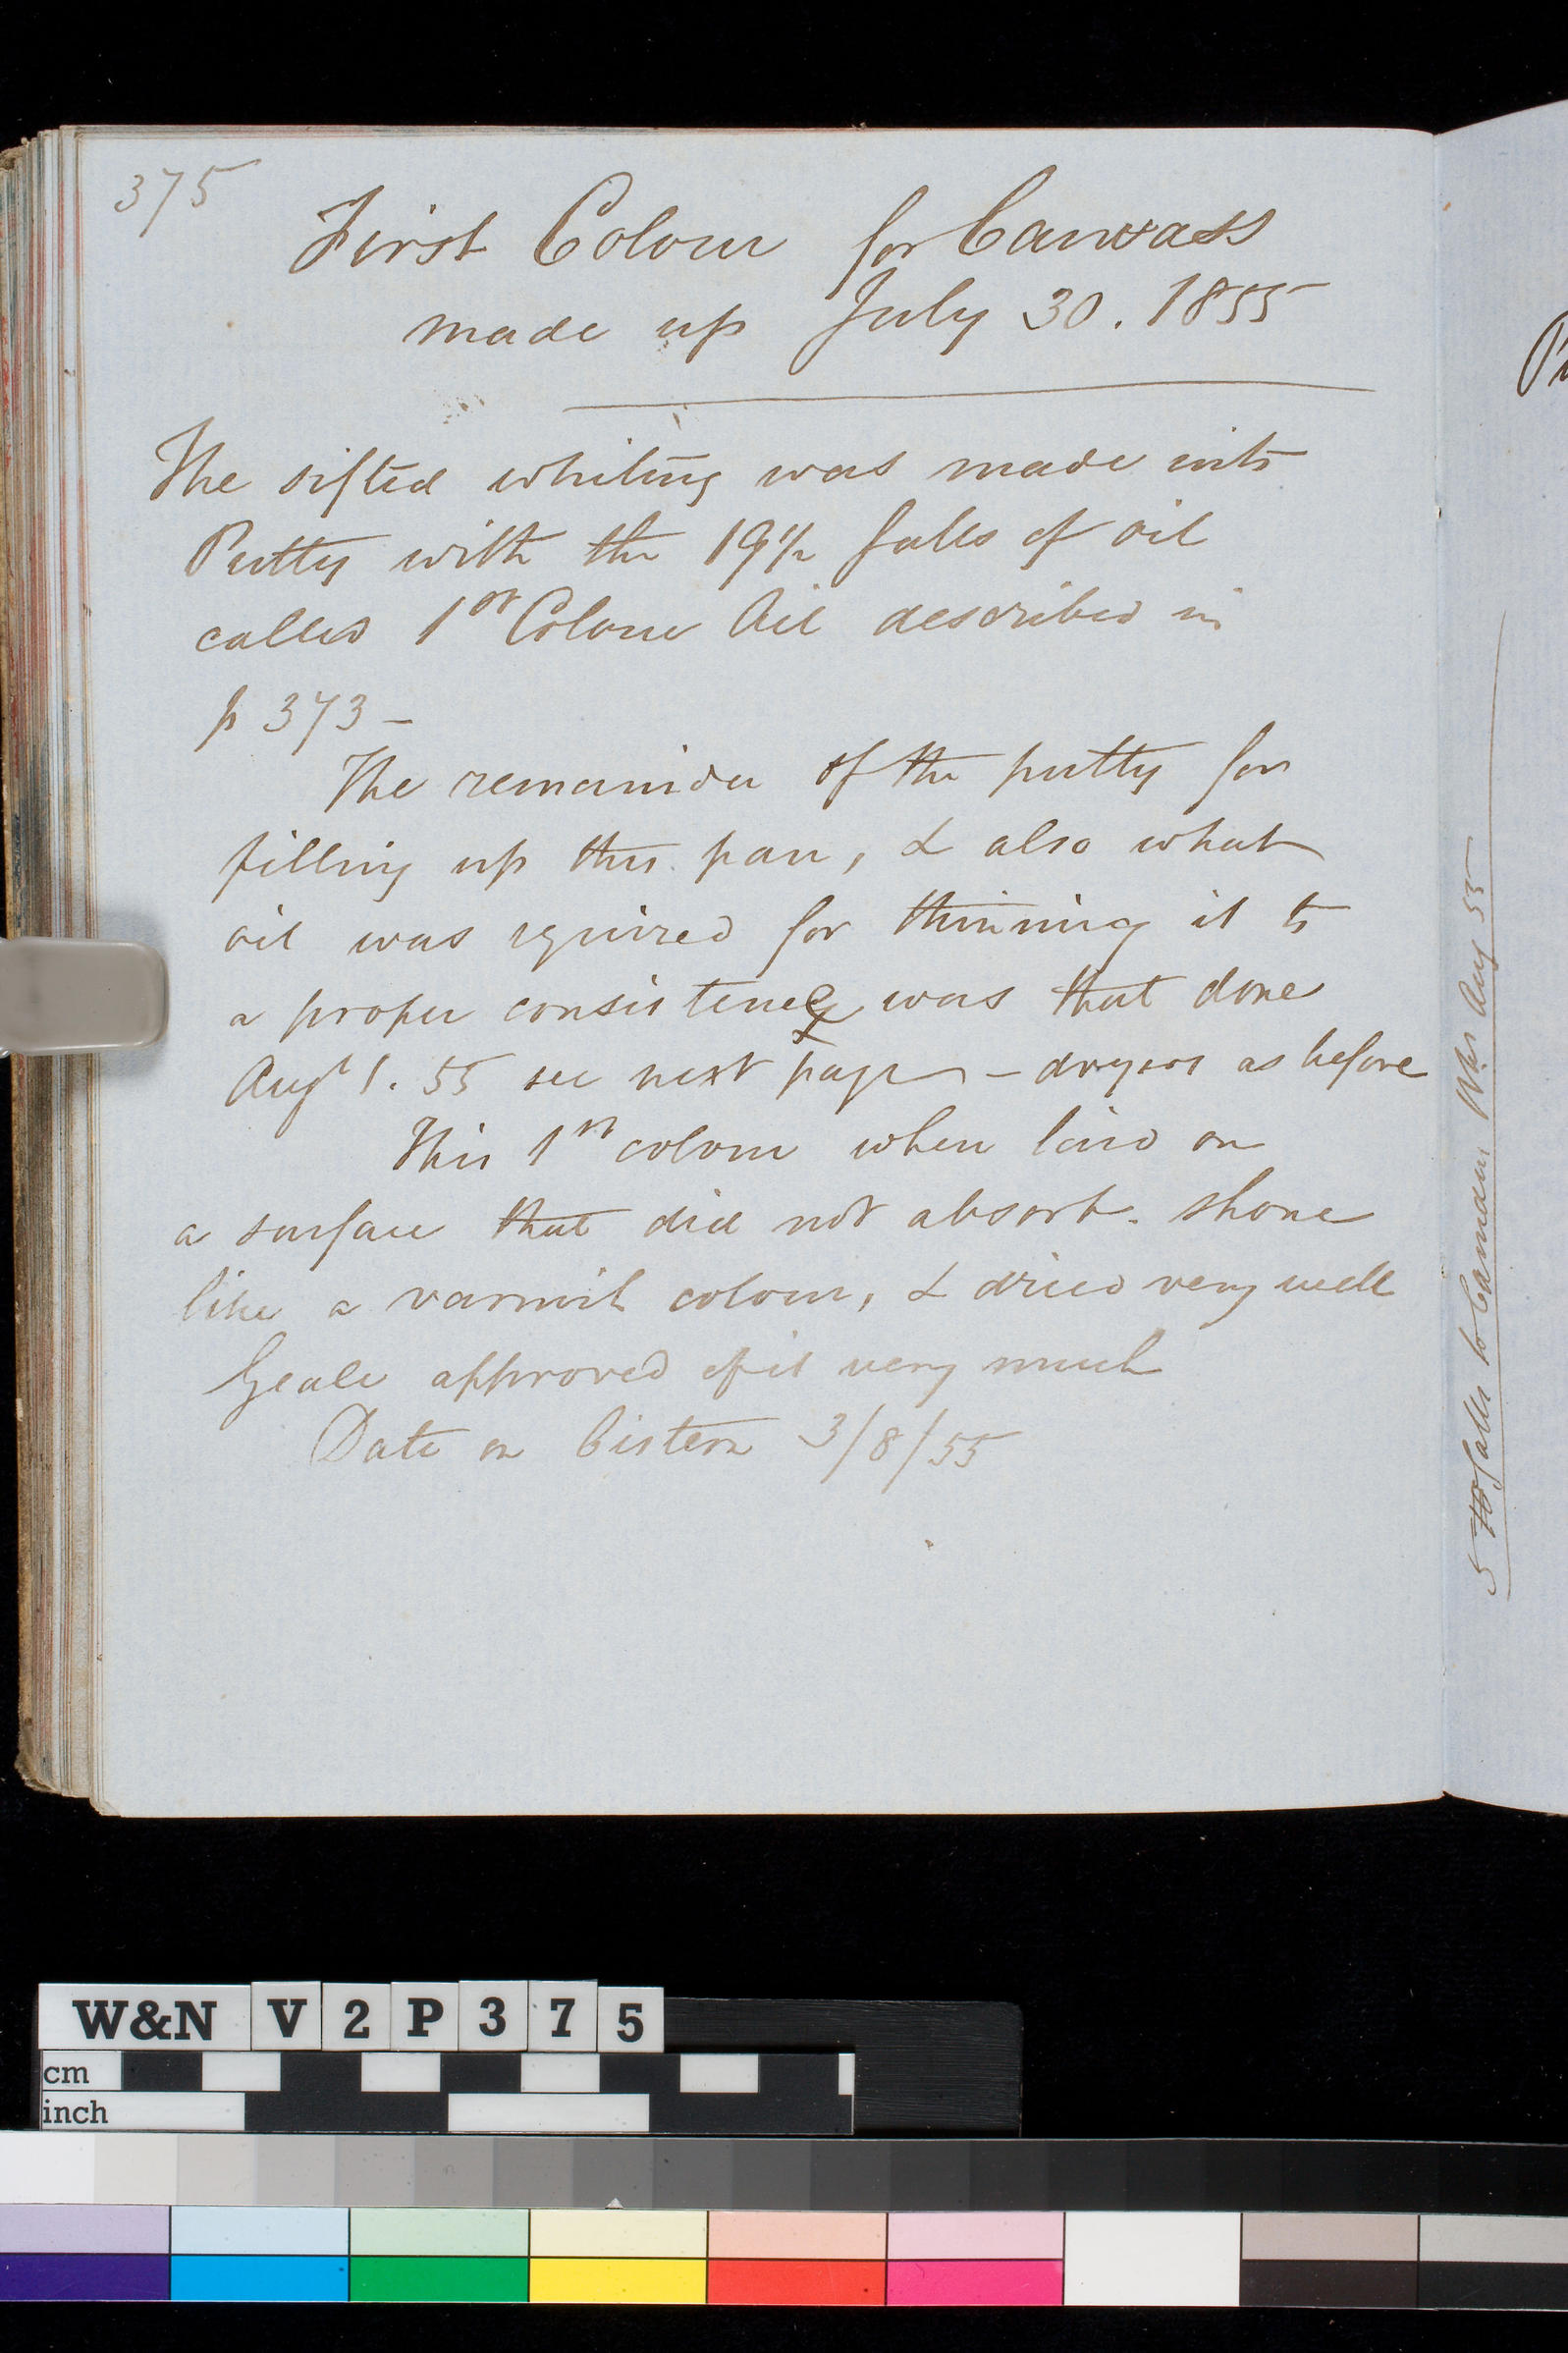 375
First Colour for Canvass
made up July 30. 1855
The sifted whiting was made into
Putty with the 19½ galls of oil
called 1st Colour Oil described in
p 373 –
The remainder of the putty for
filling up this pan, & also what
oil was required for thinning it to
a proper consistency was that done
Augt 1. 55 see next page – dryers as before
This 1st colour when laid on
a surface that did not absorb. shone
like a varnish colour, & dried very well
Geale approved of it very much
Date on Cistern 3/8/55
5 galls to Camden Wks Aug 55
W&N V2P375
cm
inch